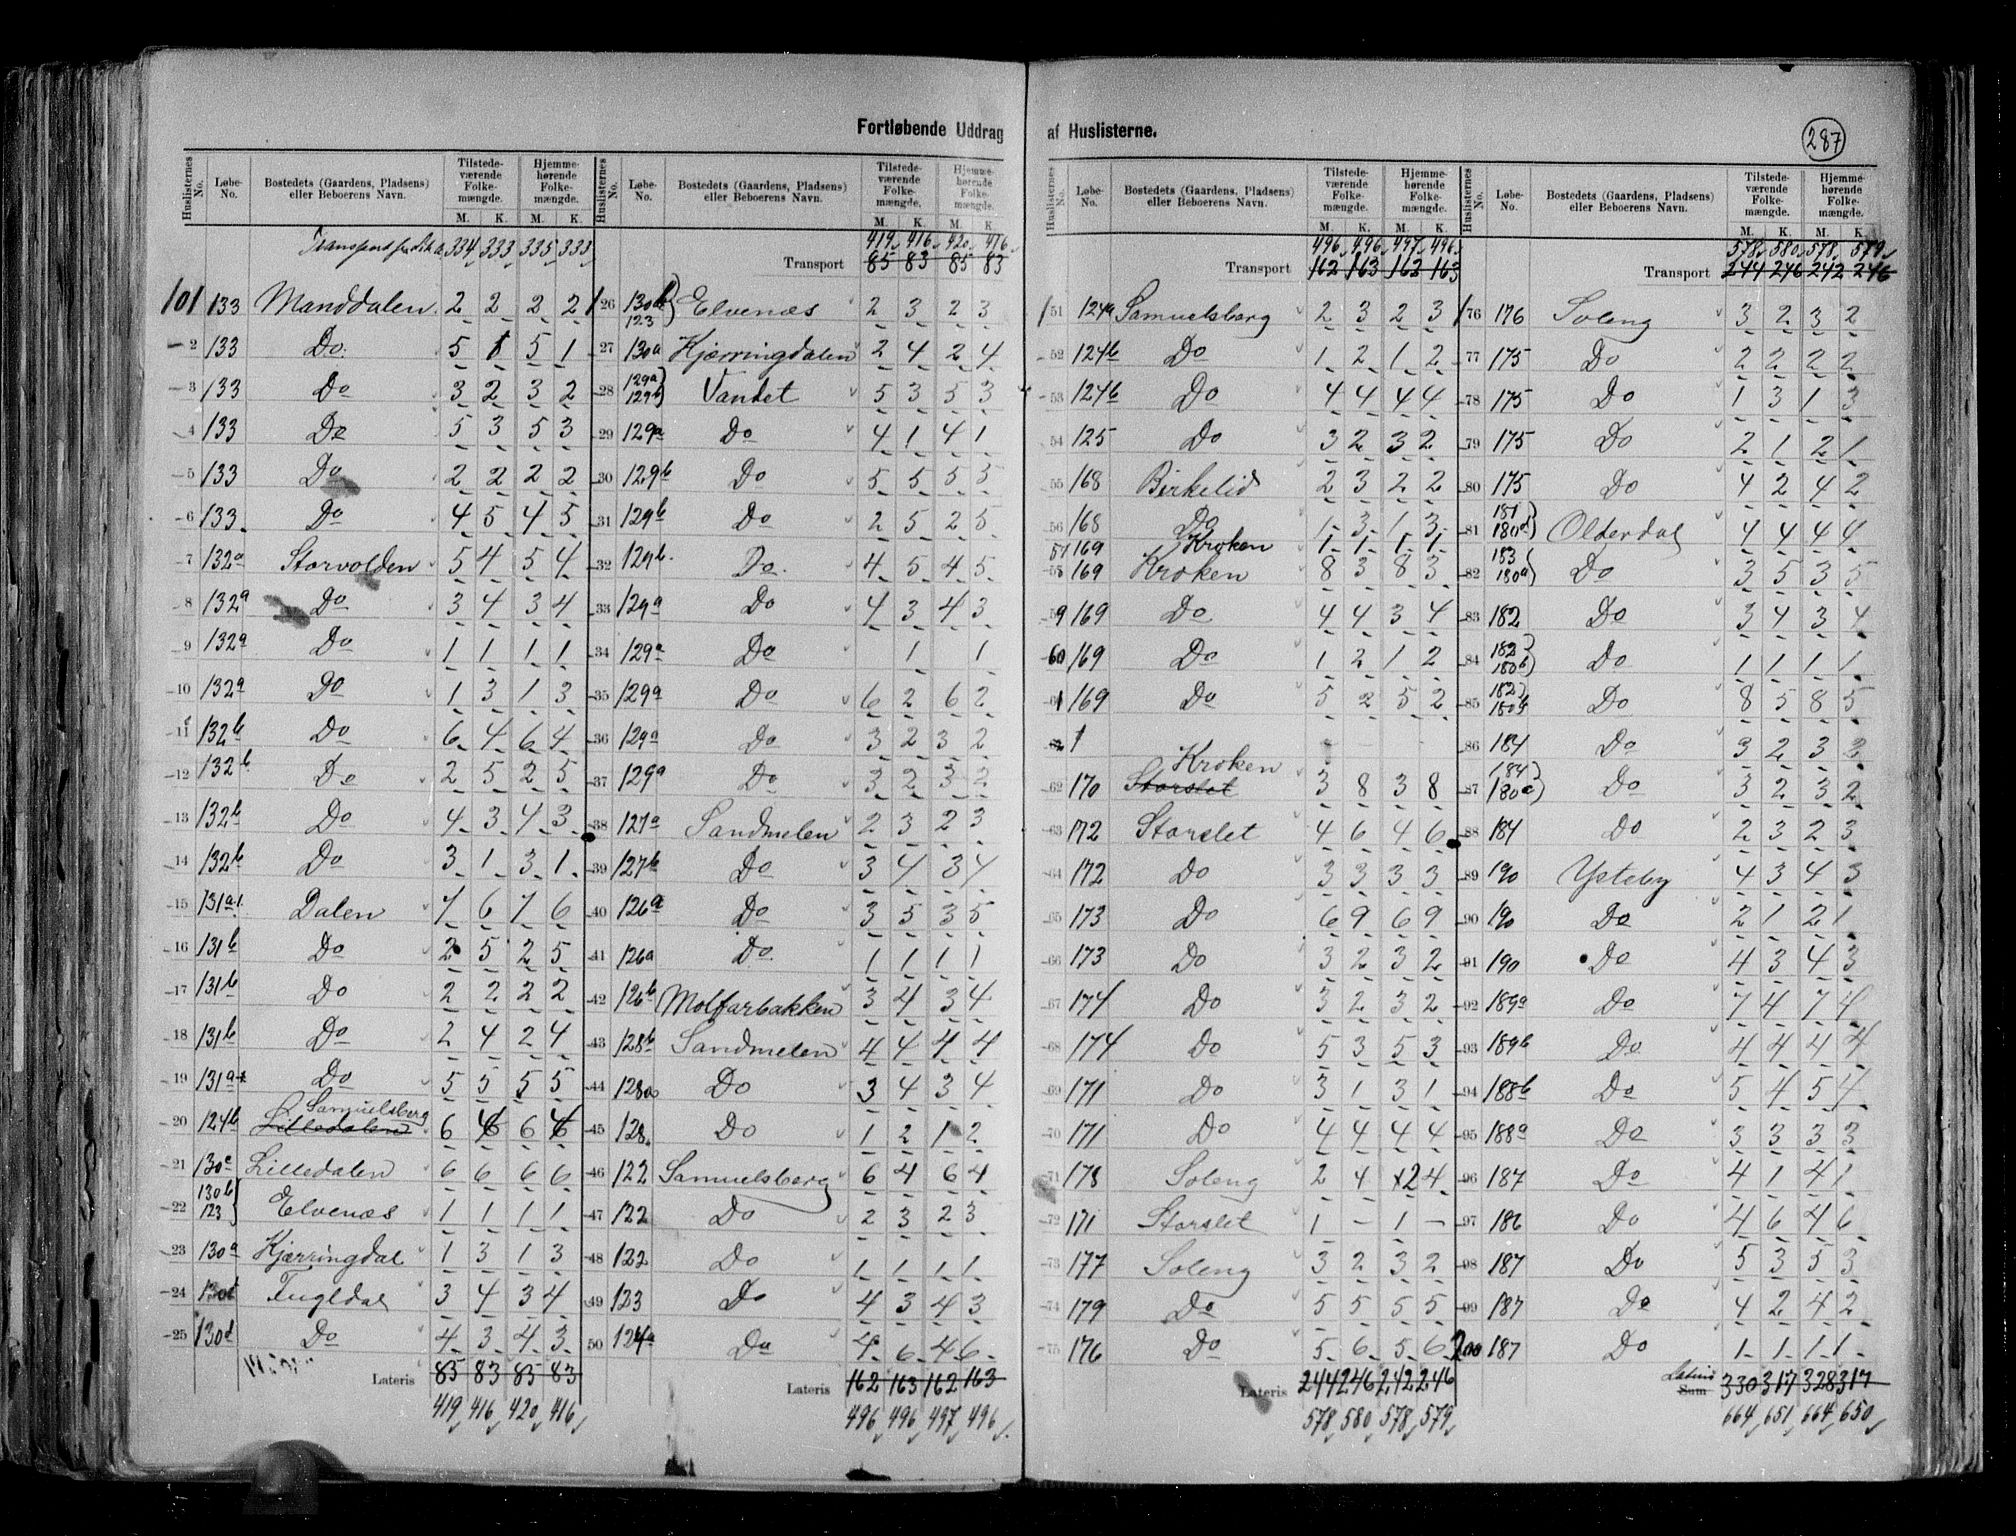 Fortløbende Uddrag af Huslisterne.
287
Huslisternes No. | Løbe-No. | Bostedets (Gaardens, Pladsens) eller Beboerens Navn. | Tilstedeværende Folkemængde. M. K. | Hjemmehørende Folkemængde. M. K.
334 333 335 333
101 133 Manddalen 2 2 2 2
2 133 Do 5 1 5 1
3 133 Do 3 2 3 2
4 133 Do 5 3 5 3
5 133 Do 2 2 2 2
6 133 Do 4 5 4 5
7 132a Storvolden 5 4 5 4
8 132a Do 3 4 3 4
9 132a Do 1 1 1 1
10 132a Do 1 3 1 3
11 132b Do 6 4 6 4
12 132b Do 2 5 2 5
13 132b Do 4 3 4 3
14 132b Do 3 1 3 1
15 131a Dalen 7 6 7 6
16 131b Do 2 5 2 5
17 131b Do 2 2 2 2
18 131b Do 2 4 2 4
19 131a Do 5 5 5 5
Samuelsberg
20 124b Lilledalen 6 6 6 6
21 130c Lilledalen 6 6 6 6
22 130b 123 Elvenæs 1 1 1 1
23 130a Kjærringdal 1 3 1 3
24 130d Fugldal 3 4 3 4
25 130d Do 4 3 4 3
Lateris 85 83 85 83
419 416 420 416
Huslisternes No. | Løbe-No. | Bostedets (Gaardens, Pladsens) eller Beboerens Navn. | Tilstedeværende Folkemængde. M. K. | Hjemmehørende Folkemængde. M. K.
419 416 420 416
Transport 85 83 85 83
126 130b 123 Elvenæs 2 3 2 3
27 130a Kjærringdalen 2 4 2 4
28 129a 129b Vandet 5 3 5 3
29 129a Do 4 1 4 1
30 129b Do 5 5 5 5
31 129b Do 2 5 2 5
32 129b Do 4 5 4 5
33 129a Do 4 3 4 3
34 129a Do 1 1
35 129a Do 6 2 6 2
36 129a Do 3 2 3 2
37 129a Do 3 2 3 2
38 127a Sandmelen 2 3 2 3
39 127b Do 3 4 3 4
40 126a Do 3 5 3 5
41 126a Do 1 1 1 1
42 126b Molfarbakken 3 4 3 4
43 128b Sandmelen 4 4 4 4
44 128a Do 3 4 3 4
45 128 Do 1 2 1 2
46 122 Samuelsberg 6 4 6 4
47 122 Do 2 3 2 3
48 122 Do 1 1 1 1
49 123 Do 4 3 4 3
50 124a Do 4 6 4 6
Lateris 162 163 162 163
496 496 497 496
Huslisternes No. | Løbe-No. | Bostedets (Gaardens, Pladsens) eller Beboerens Navn. | Tilstedeværende Folkemængde. M. K. | Hjemmehørende Folkemængde. M. K.
496 496 497 496
Transport 162 163 162 163
151 124a Samuelsberg 2 3 2 3
52 124b Do 1 2 1 2
53 124b Do 4 4 4 4
54 125 Do 3 2 3 2
55 168 Birkelid 2 3 2 2
56 168 Do 1 3 1 3
57 169 Kroken 1 1 1 1
58 169 Kroken 8 3 8 3
59 169 Do 4 4 3 4
60 169 Do 1 2 1 2
61 169 Do 5 2 5 2
Kroken
62 170 Storslet 3 8 3 8
63 172 Storslet 4 6 4 6
64 172 Do 3 3 3 3
65 173 Do 6 9 6 9
66 173 Do 3 2 3 2
67 174 Do 3 2 3 2
68 174 Do 5 3 5 3
69 171 Do 3 1 3 1
70 171 Do 4 4 4 4
71 178 Soleng 2 4 2 4
72 171 Storslet 1 – 1 –
73 177 Soleng 3 2 3 2
74 179 Do 5 5 5 5
75 176 Do 5 6 5 6
Lateris 244 246 242 246
578 580 578 579
Huslisternes No. | Løbe-No. | Bostedets (Gaardens, Pladsens) eller Beboerens Navn. | Tilstedeværende Folkemængde. M. K. | Hjemmehørende Folkemængde. M. K.
578 580 578 579
Transport 244 246 242 246
176 176 Soleng 3 2 3 2
77 175 Do 2 2 2 2
78 175 Do 1 3 1 3
79 175 Do 2 1 2 1
80 175 Do 4 2 4 2
81 181 180d Olderdal 4 4 4 4
82 183 180a Do 3 5 3 5
83 182 Do 3 4 3 4
84 182 180b Do 1 1 1 1
85 182 180b Do 8 5 8 5
86 184 Do 3 2 3 2
87 184 180a Do 3 2 3 2
88 184 Do 2 3 2 3
89 190 Ysteby 4 3 4 3
90 190 Do 2 1 2 1
91 190 Do 4 3 4 3
92 189a Do 7 4 7 4
93 189b Do 4 4 4 4
94 188b Do 5 4 5 4
95 188a Do 3 3 3 3
96 187 Do 4 1 4 1
97 186 Do 4 6 4 6
98 187 Do 5 3 5 3
99 187 Do 4 2 4 2
200 187 Do 1 1 1 1
Lateris
Sum 330 317 328 317
664 651 664 650